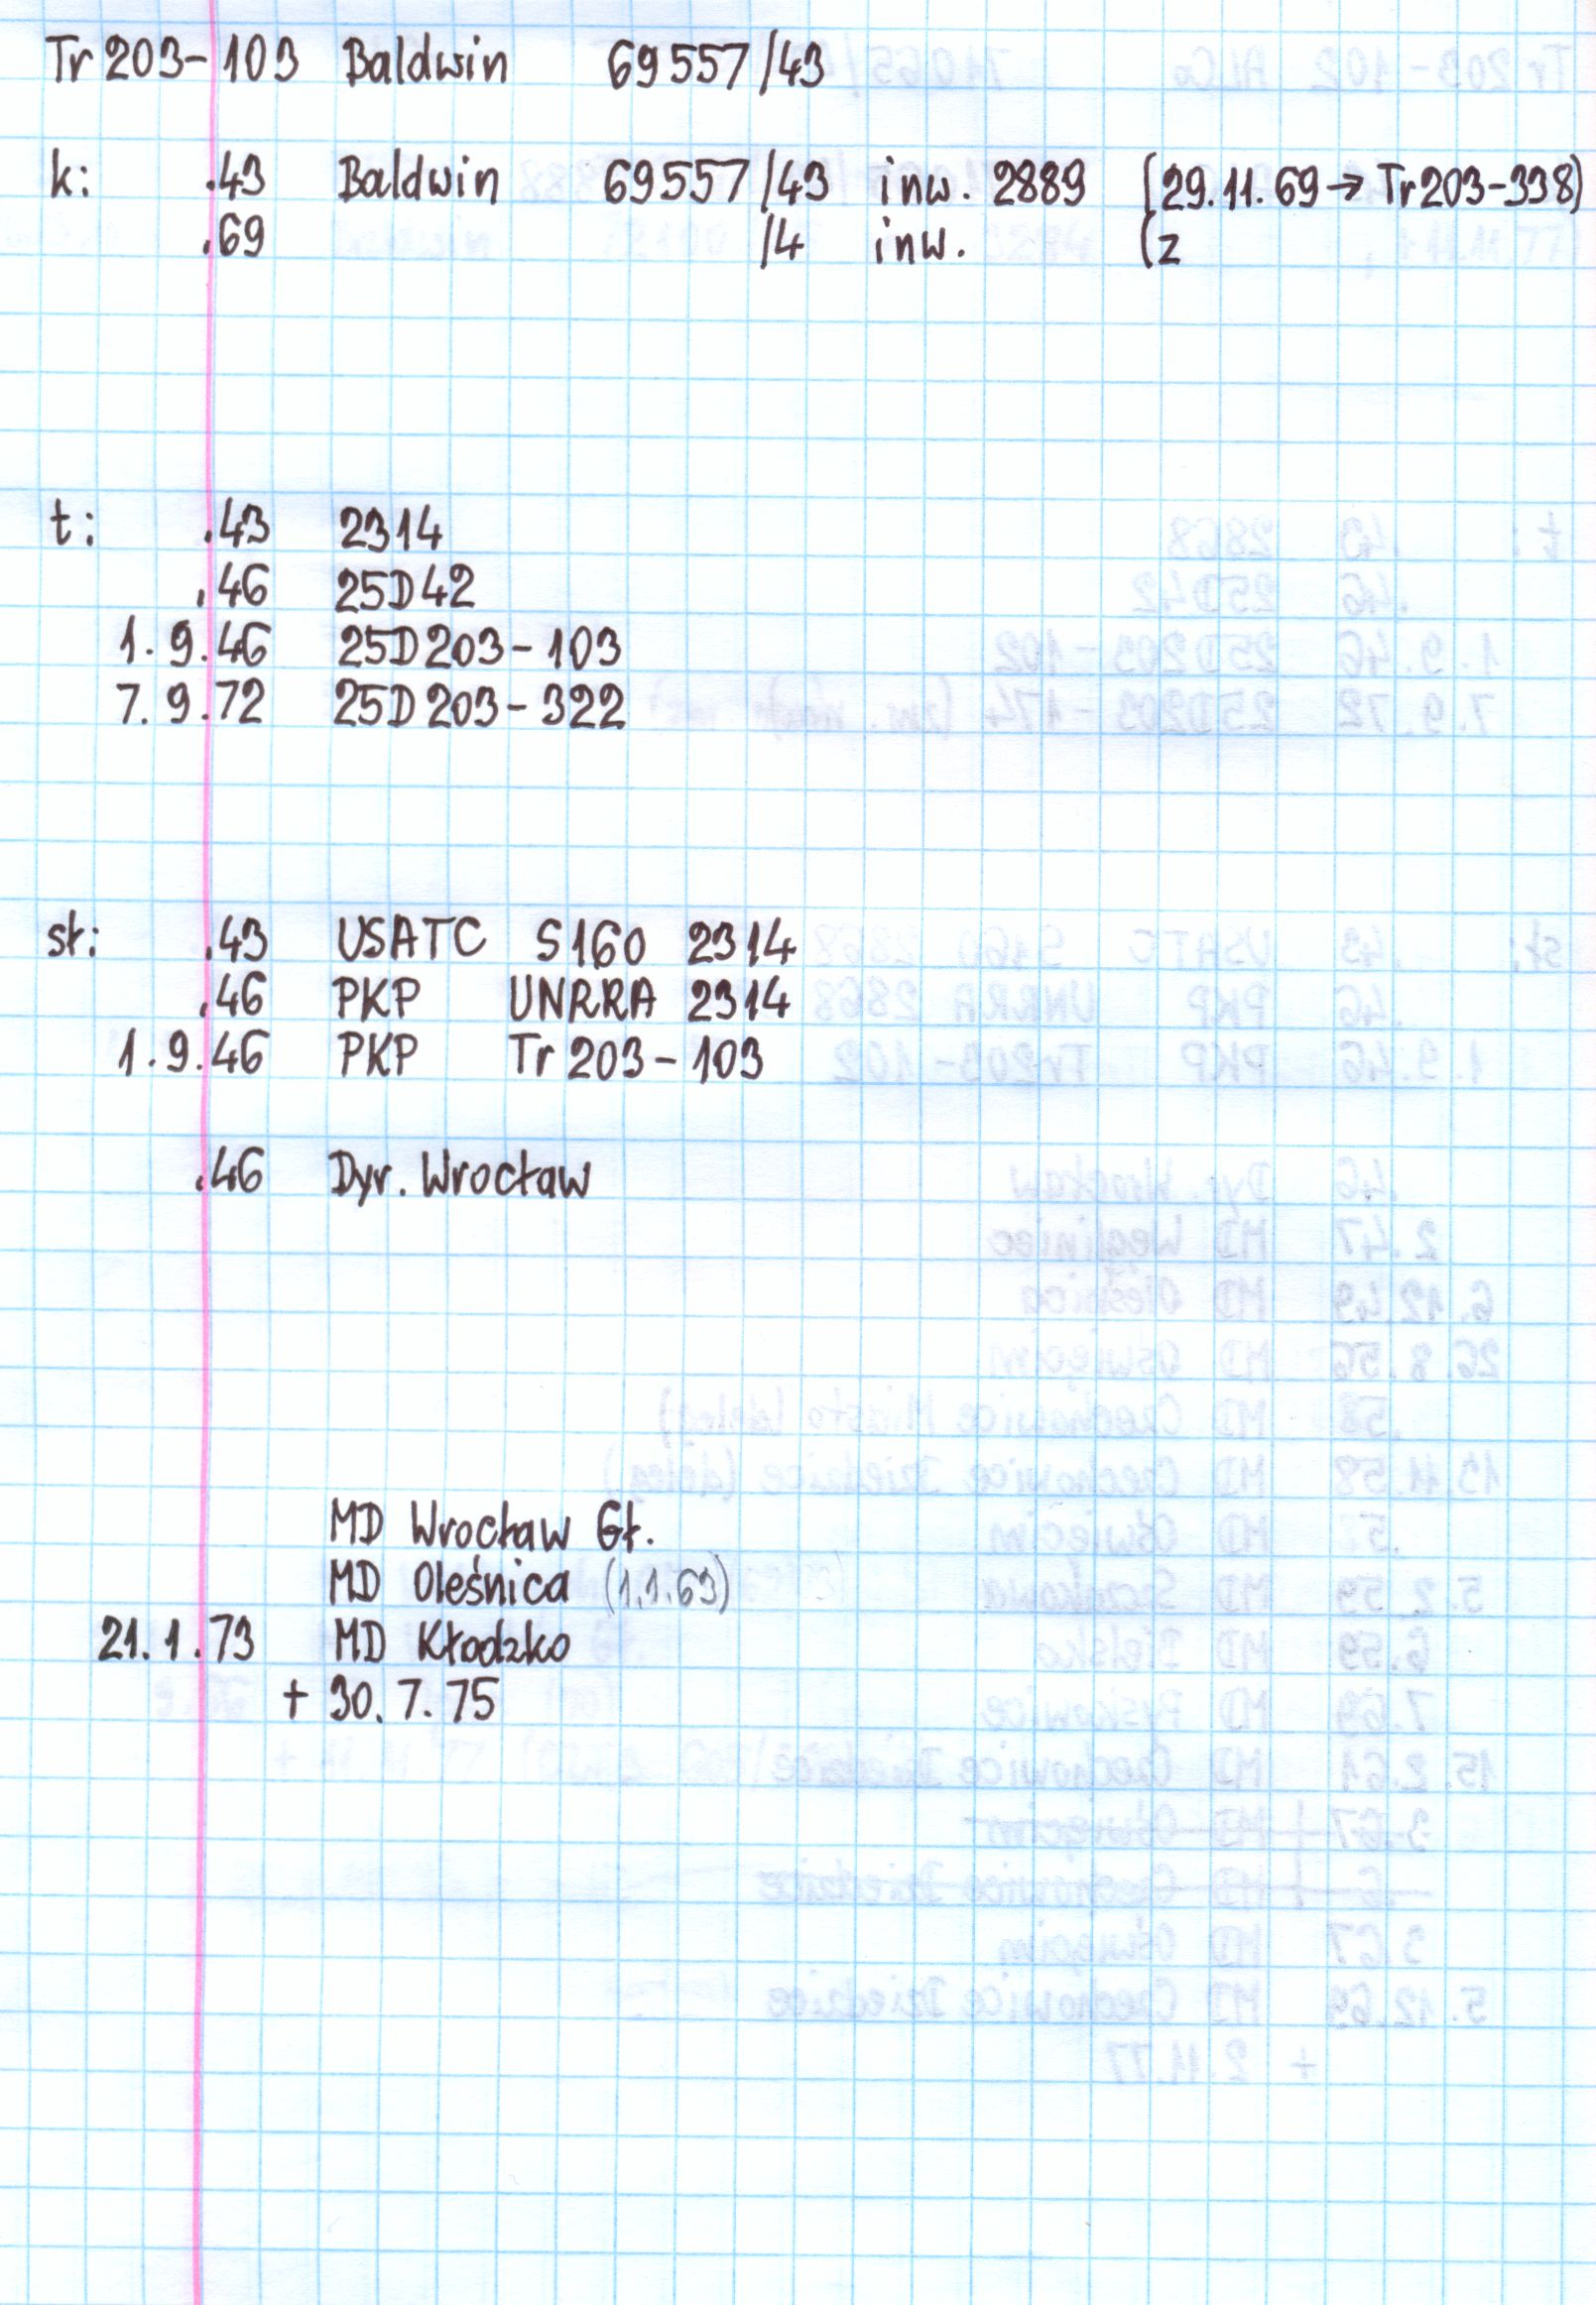 Tr 203-103 Baldwin 69557/43
k: .43 Baldwin 69557/43 inw. 2889 (29.11.69 → Tr203-338)
.69 /4 inw. (z
t: .43 2314
.46 25D42
1.9.46 25D203-103
7.9.72 25D203-322
sł: .43 USATC S160 2314
.46 PKP UNRRA 2314
1.9.46 PKP Tr 203-103
.46 Dyr. Wrocław
MD Wrocław Gł.
MD Oleśnica (1.1.63)
21.1.73 MD Kłodzko
+ 30.7.75